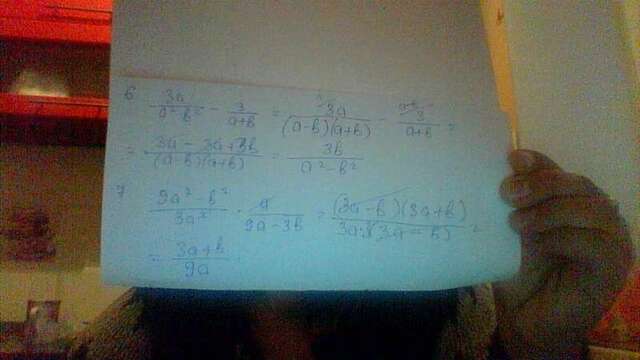 6 3a/(a²-b²) - 3/(a+b) = 3a/((a-b)(a+b)) - 3/(a+b) =
= (3a-3a+3b)/((a-b)(a+b)) = 3b/(a²-b²)
7 (9a²-b²)/(3a²) · a/(9a-3b) = ((3a-b)(3a+b))/(3a·3(3a-b)) =
= (3a+b)/(9a)